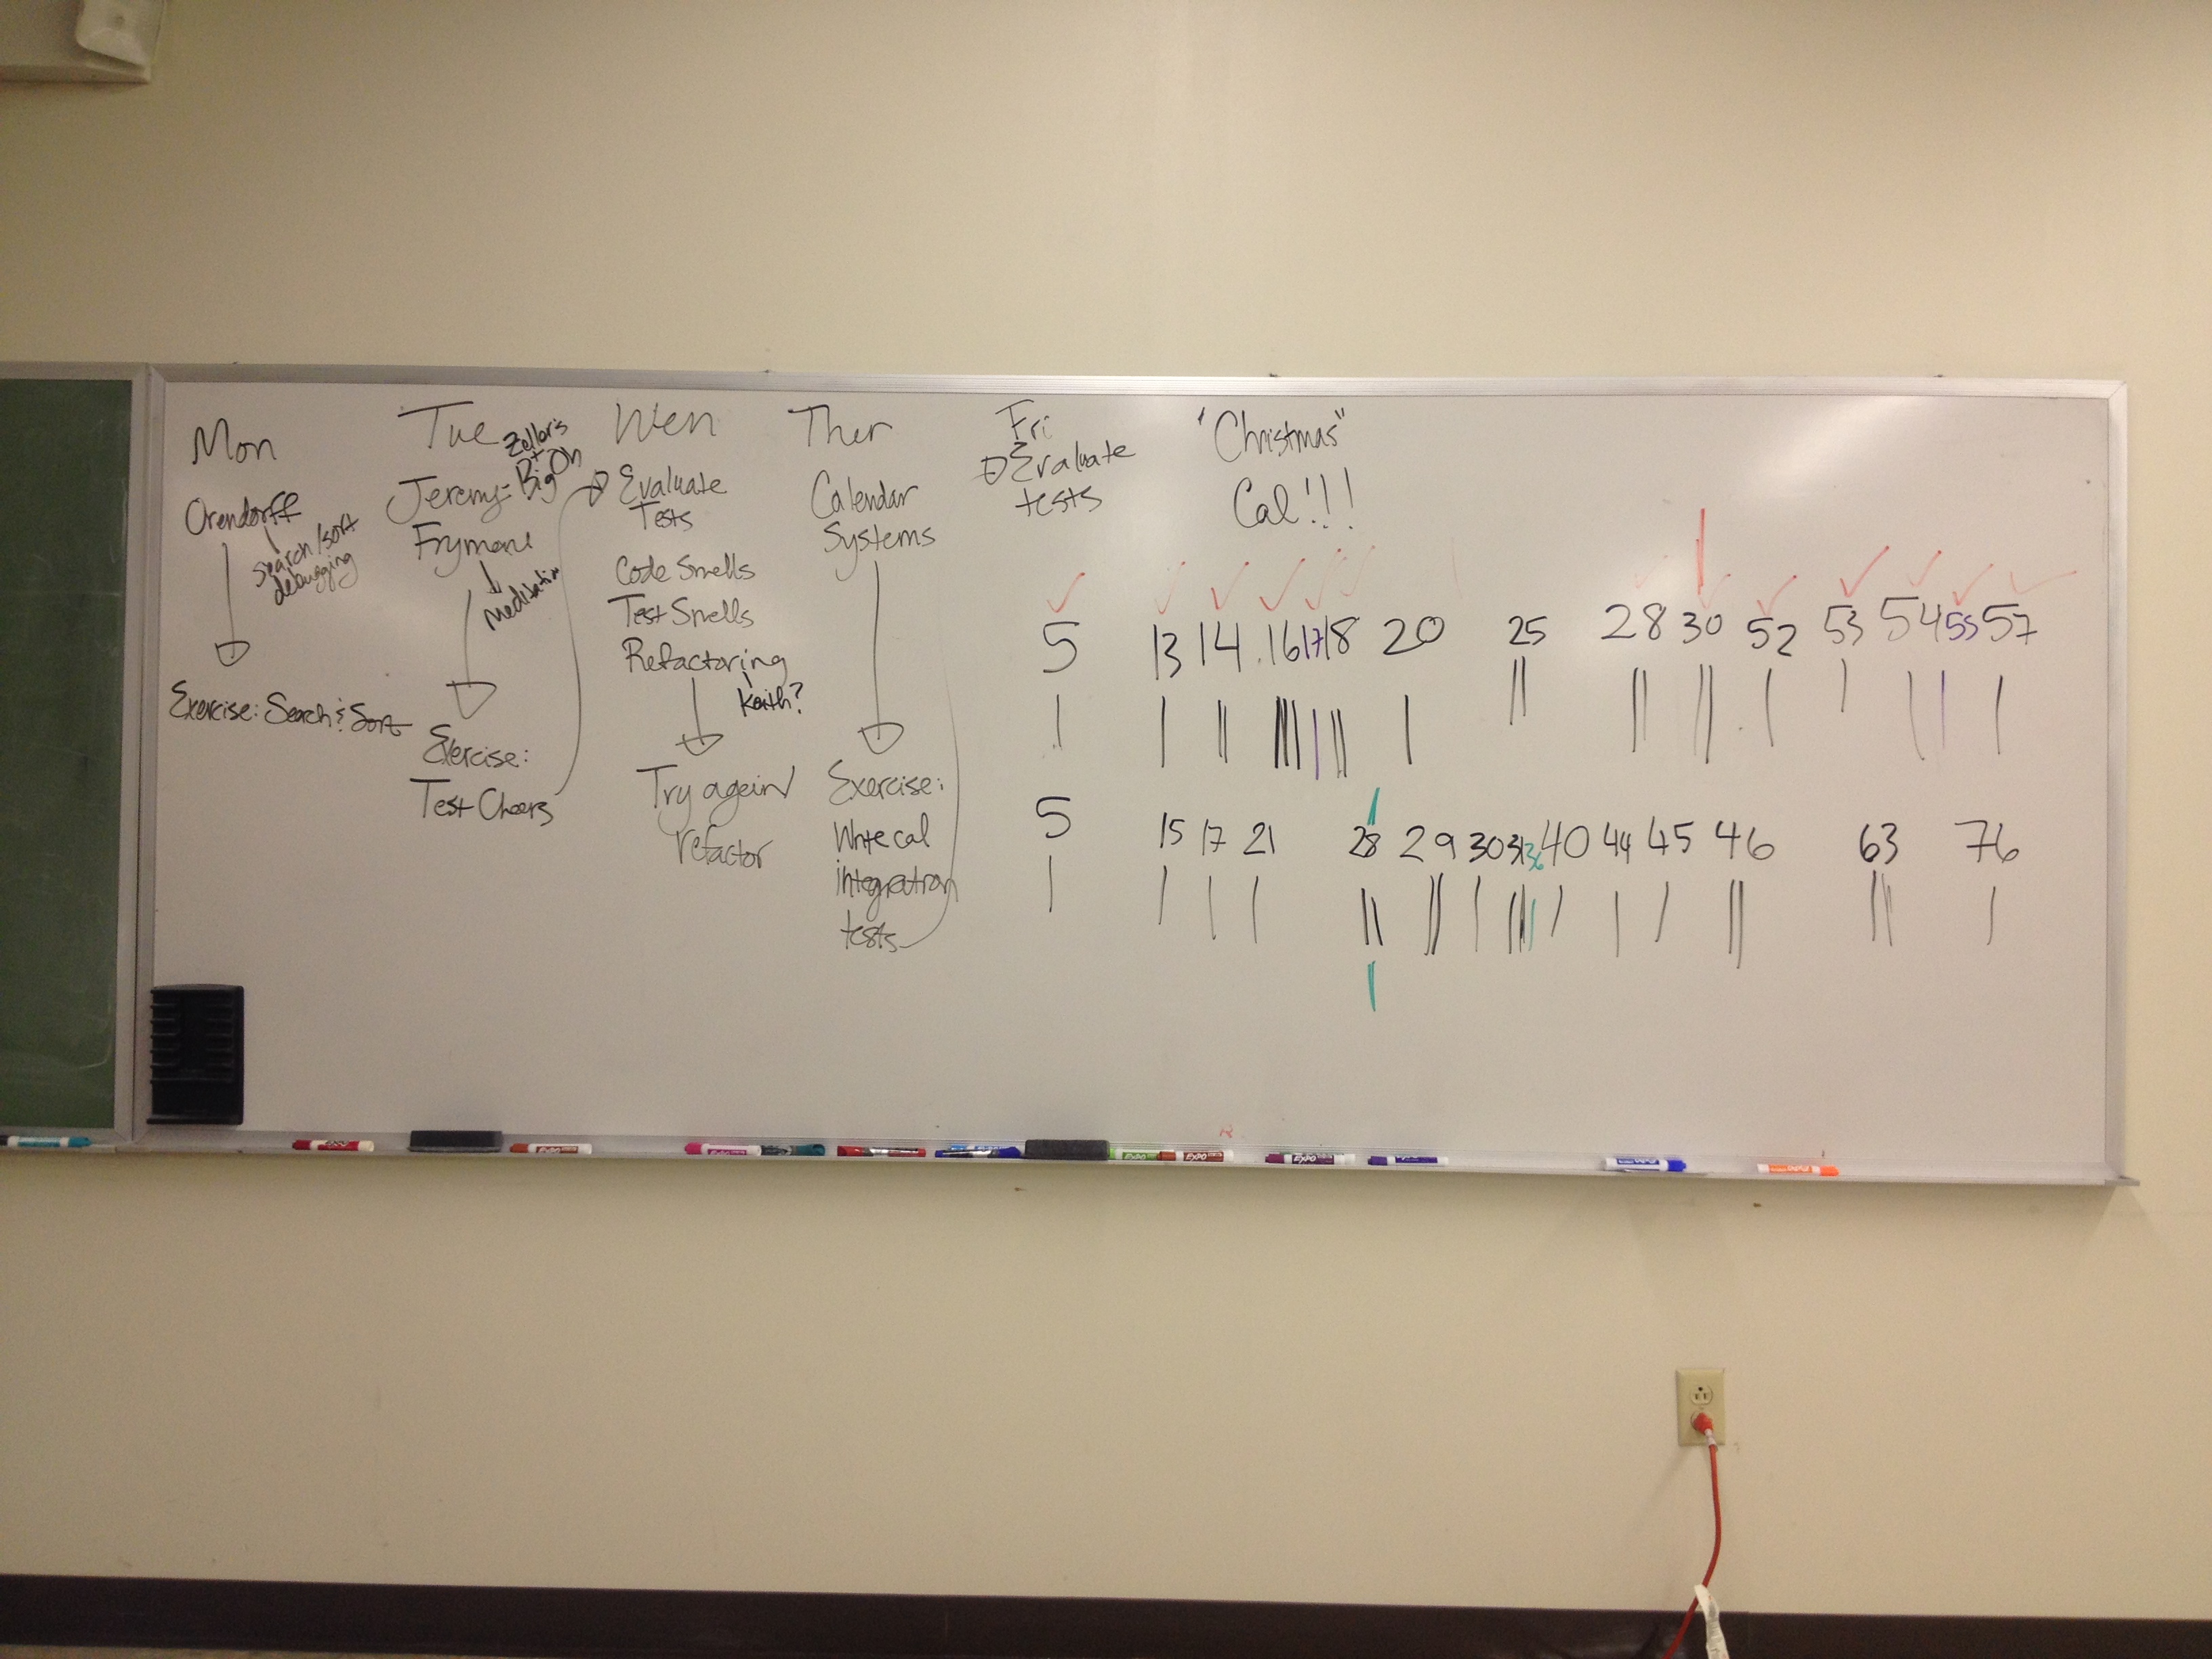 Mon
Orendorff
search/sort
debugging
Exercise: Search & Sort
Tue
Zeller's
+
Big Oh
Jeremy-
Frymane
meditation
Exercise:
Test Cheers
Wen
Evaluate
Tests
Code Smells
Test Smells
Refactoring
Keith?
Try again/
refactor
Ther
Calendar
Systems
Exercise:
Write cal
integration
tests
Fri
Evaluate
tests
"Christmas"
Cal!!!
5 13 14 16 17 18 20 25 28 30 52 53 54 55 57
5 15 17 21 28 29 30 31 36 40 44 45 46 63 76
EXPO
EXPO
EXPO